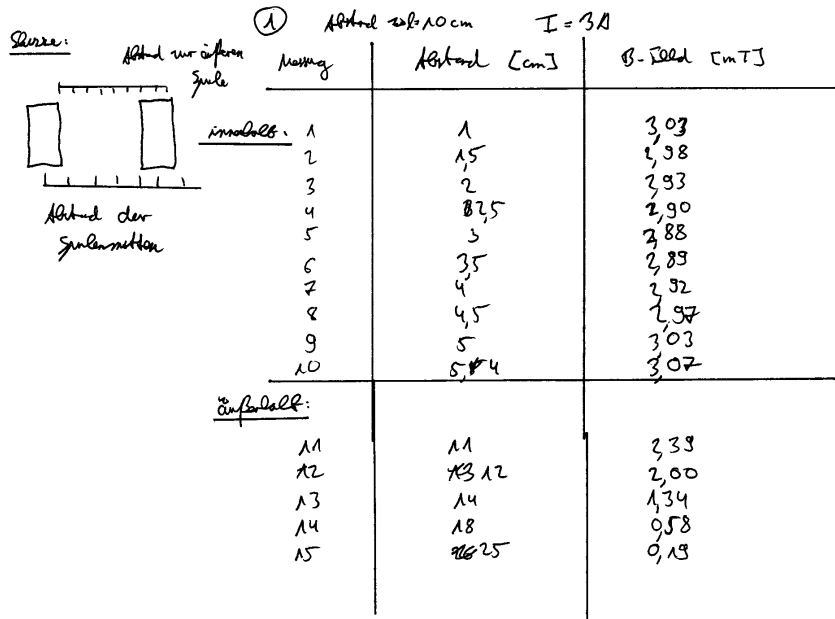 ① Abstand rel=10cm I = 3A
Skizze:
Abstand zur äußeren
Spule
Abstand der
Spulenmitten
Messung Abstand [cm] B-Feld [mT]
innerhalb:
1 1 3,03
2 1,5 2,98
3 2 2,93
4 2,5 2,90
5 3 2,88
6 3,5 2,89
7 4 2,92
8 4,5 2,97
9 5 3,03
10 5,4 3,07
außerhalb:
11 11 2,39
12 12 2,00
13 14 1,34
14 18 0,58
15 25 0,19